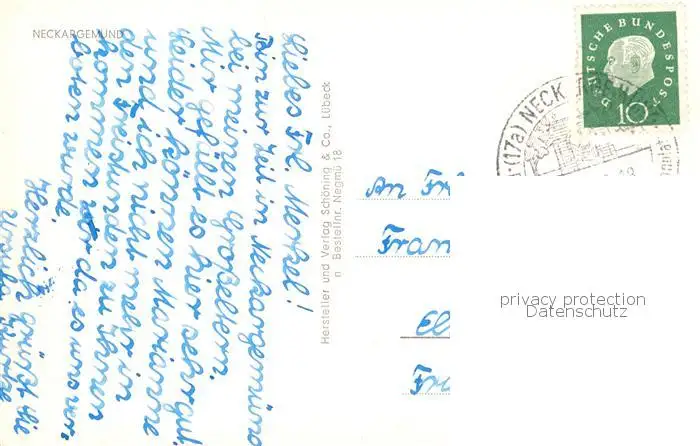 NECKARGEMÜND
Liebes Frl. Merkel!
Bin zur Zeit in Neckargemünd
bei meinen Großeltern.
Mir gefällt es hier sehr gut.
Leider können Marianne
und ich nicht mehr in
den Freistunden zu Ihnen
kommen da es uns ver-
boten wurde.
Herzlich grüßt Sie
Hersteller und Verlag Schöning & Co., Lübeck
n Bestellnr. Negmü 18
DEUTSCHE BUNDESPOST
10
(17a) NECK
An Fr
Fran
El
Fr
privacy protection
Datenschutz